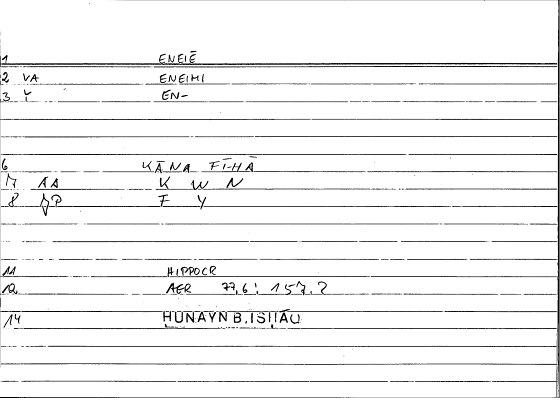 1 ENEIĒ
2 VA ENEIMI
3 Y EN-
6 KĀNA FĪ-HĀ
7 AA K W N
8 F Y
11 HIPPOCR
12 AER 77,6: 157.2
14 ḤUNAYN B.ISḤĀQ